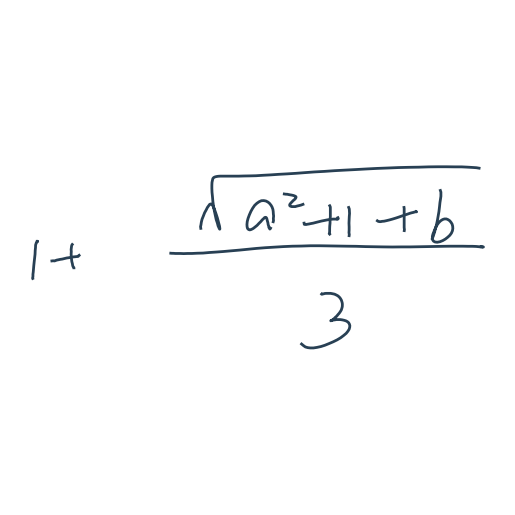 1+ \frac{\sqrt{a^2+1+b}}{3}